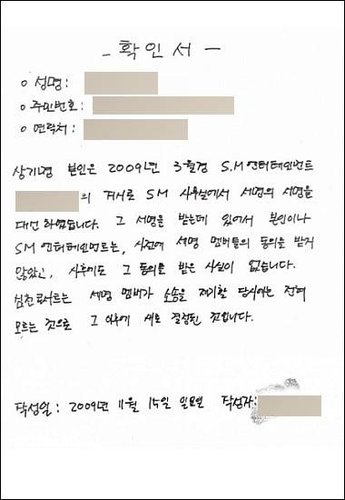 - 확인서 -
o 성명:
o 주민번호:
o 연락처:
상기명 본인은 2009년 3월경 S.M 엔터테인먼트
의 지시로 SM 사무실에서 세명의 서명을
대신 하였습니다. 그 서명을 받는데 있어서 본인이나
SM 엔터테인먼트는, 사전에 세명 멤버들의 동의를 받지
않았고, 사후에도 그 동의를 받은 사실이 없습니다.
심천콘서트는 세명 멤버가 소송을 제기할 당시에는 전혀
모르는 것으로 그 이후에 새로 결정된 것입니다.
작성일: 2009년 11월 15일 일요일 작성자: